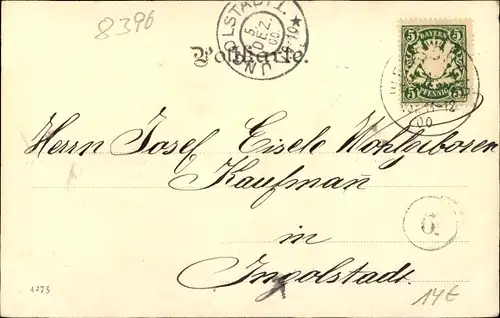 8396
INGOLSTADT I.
5.
DEZ.
00.
9-10
Postkarte.
BAYERN
5 5
5 PFENNIG 5
11-12
00
Herrn Josef Eisele Wohlgeboren
Kaufmann
in
Ingolstadt.
4275
14€